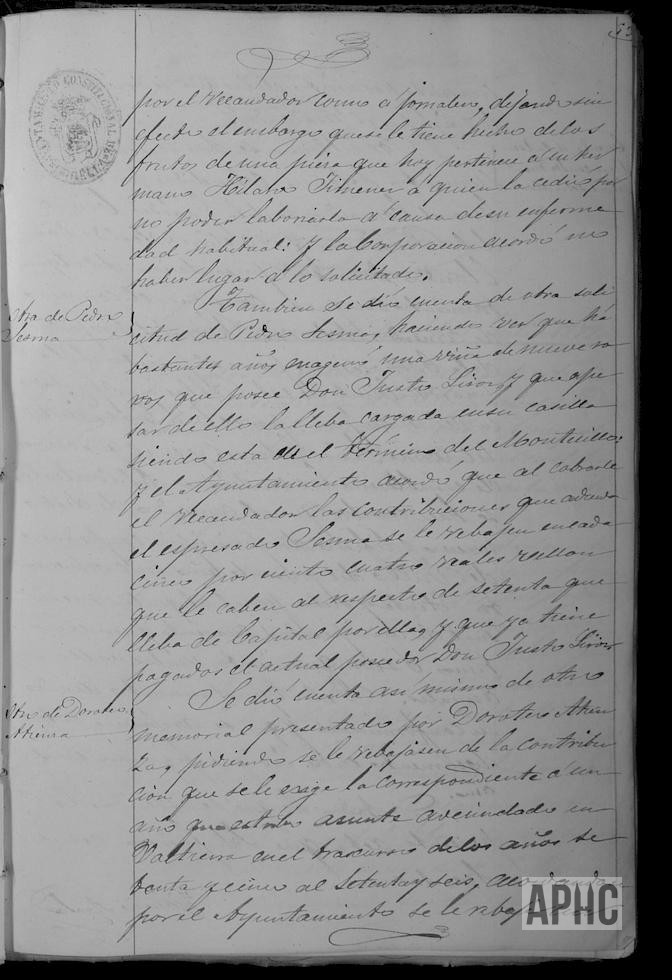 por el recaudador como á jornalero, dejando sin
efecto el embargo que se le tiene hecho de los
frutos de una pieza que hoy pertenece á su her
mano Hilario Jimenez á quien la cedió por
no poder laborearla á causa de su enferme
dad habitual: Y la Corporacion acordó no
haber lugar á lo solicitado.
Otra de Pedro
Sesma
Tambien se dió cuenta de otra soli
citud de Pedro Sesma, haciendo ver que há
bastantes años enagenó una viña de nueve ro
vos que posee Don Justo y que ape
sar de ello la lleba cargada en su casilla
siendo esta en el término del Montecillo:
y el Ayuntamiento acordó que al cobrarle
el recaudador las contribuciones que adeuda
el espresado Sesma se le rebajen en cada
cinco por ciento cuatro reales vellon
que le caben al respecto de setenta que
lleba de Capital por ella, y que ya tiene
pagados el actual posedor Don Justo
Otra de Doroteo
Atienza
Se dió cuenta asi mismo de otro
memorial presentado por Doroteo Atien
za, pidiendo se le rebajasen de la contribu
cion que se le exige la correspondiente á un
año que estubo ausente avecindado en
Valtierra en el trascurso de los años se
tenta y cinco al setenta y seis, acordandose
por el Ayuntamiento se le
APHC